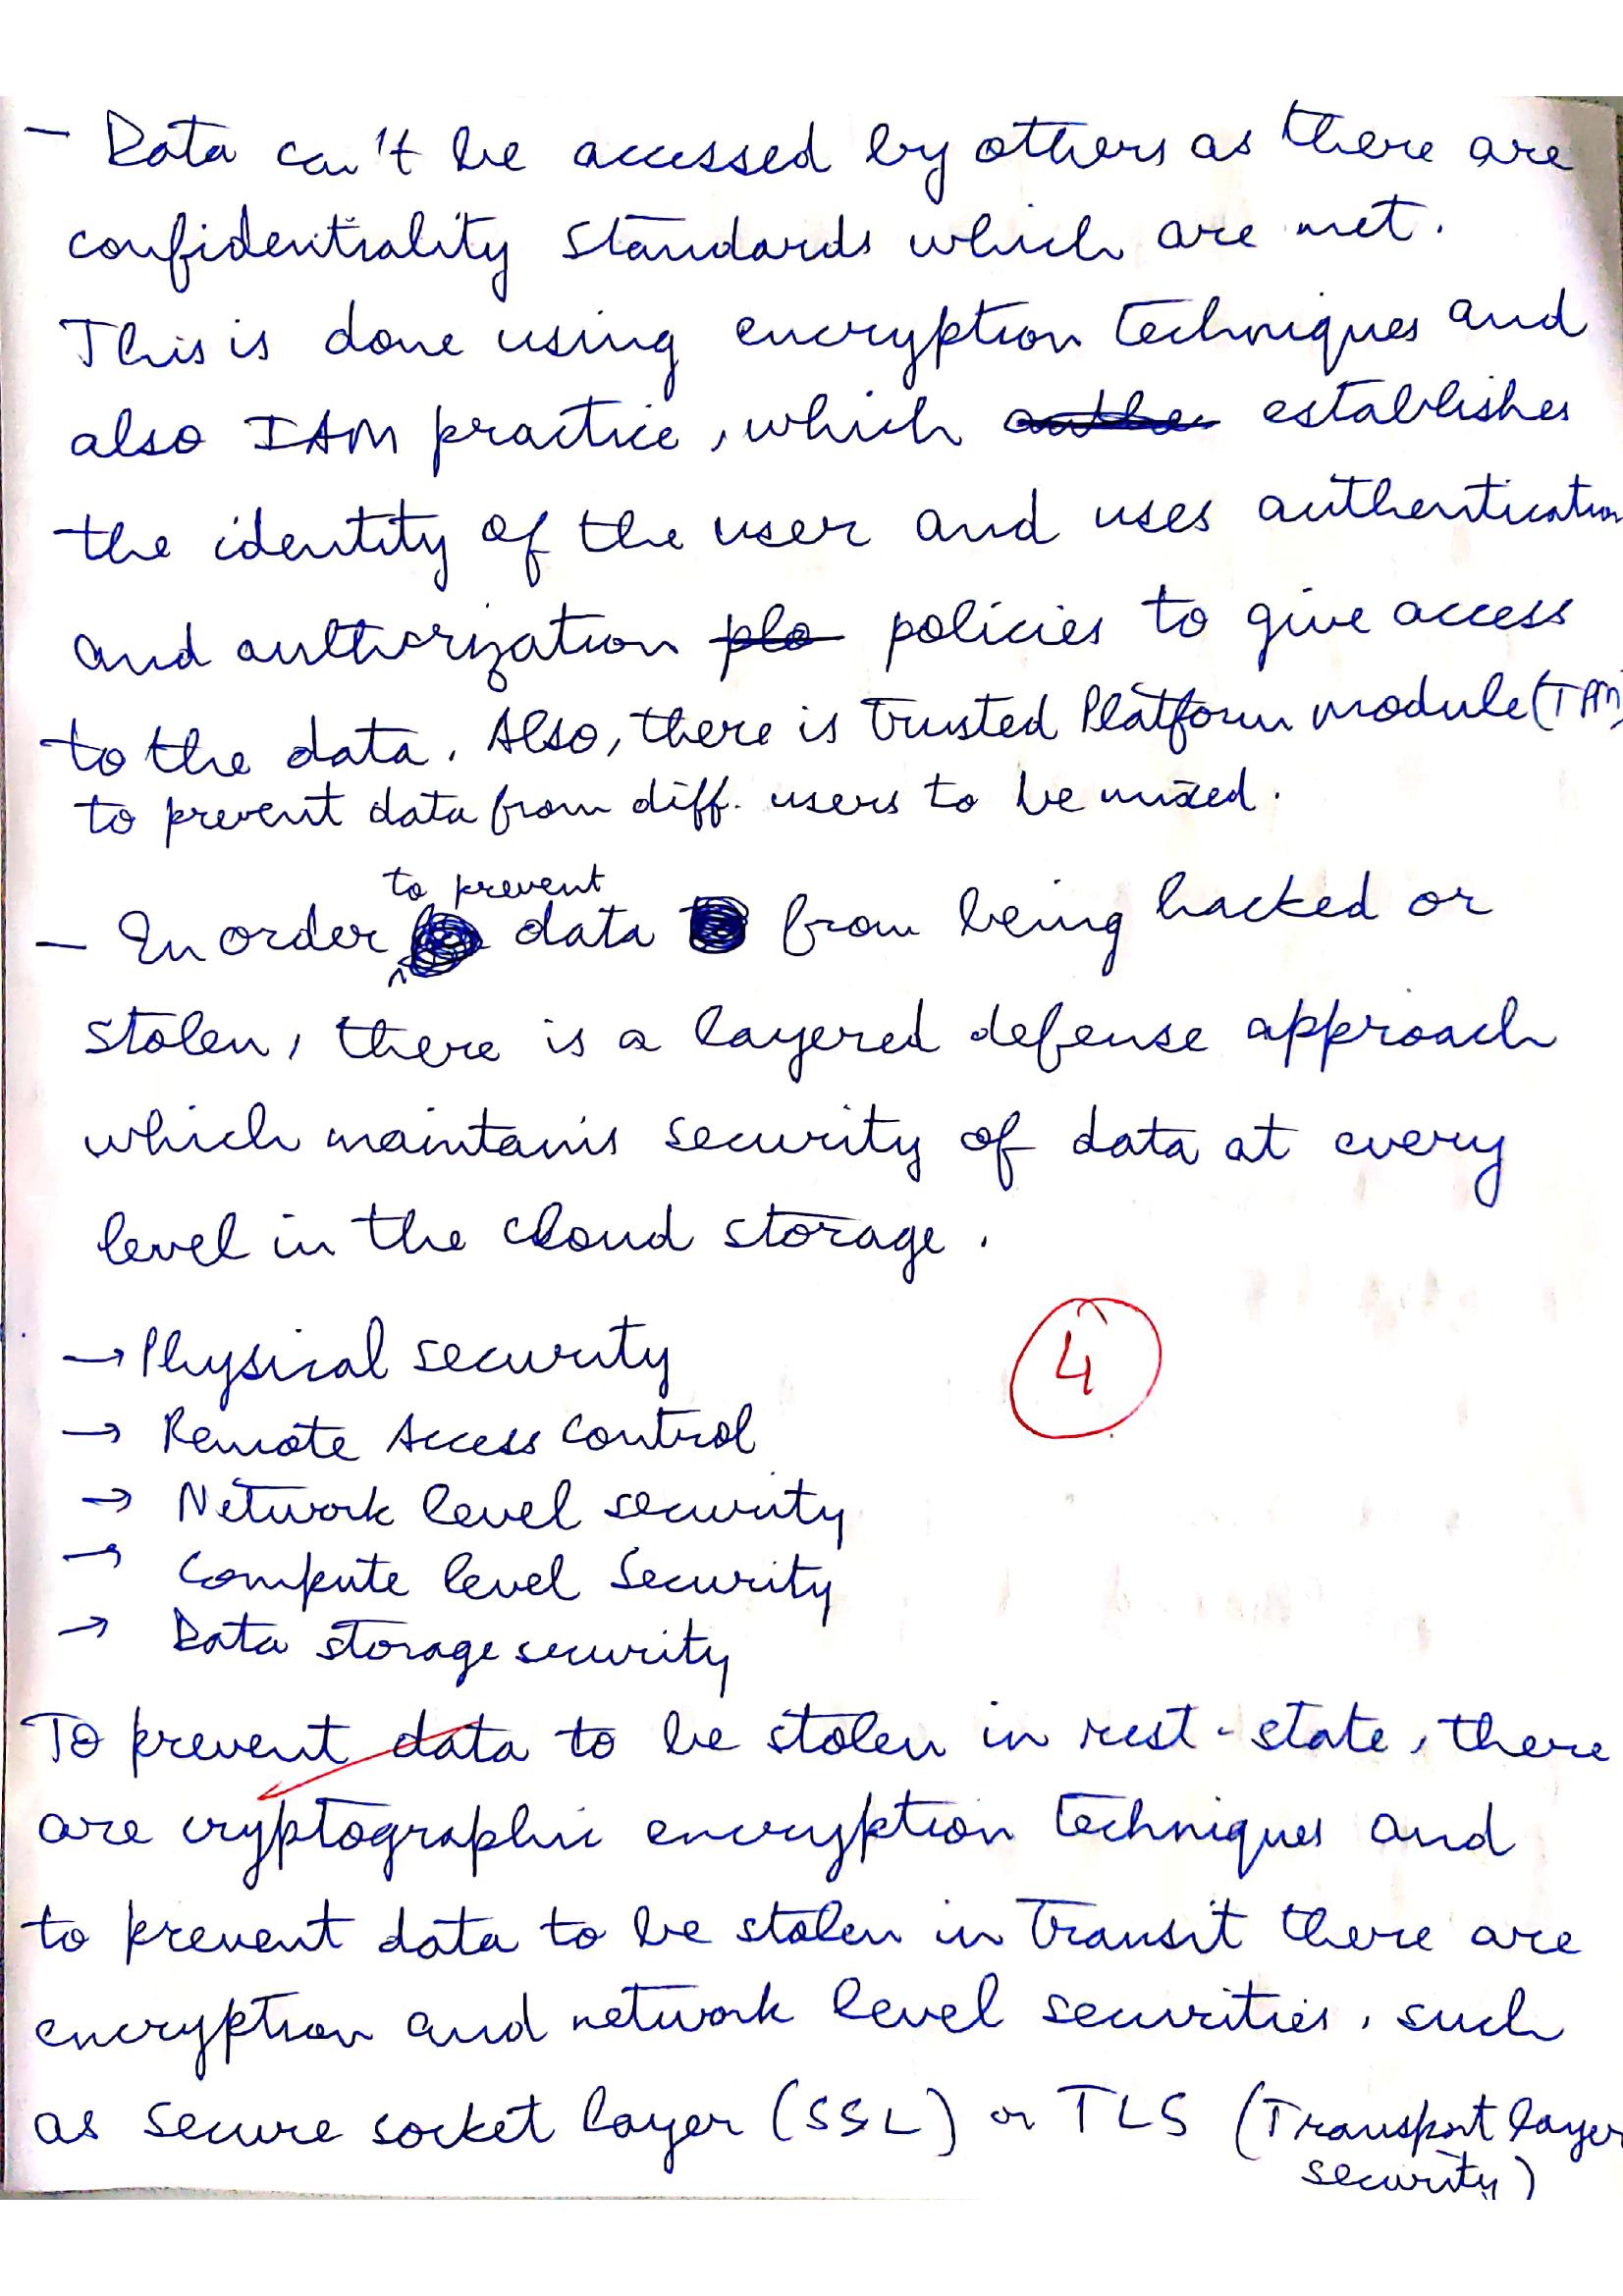 - Data can't be accessed by others as there are
confidentiality standards which are met.
This is done using encryption techniques and
also IAM practice, which establishes
the identity of the user and uses authentication
and authorization policies to give access
to the data. Also, there is Trusted Platform module (TPM)
to prevent data from diff. users to be mixed.
to prevent
- In order data from being hacked or
stolen, there is a layered defense approach
which maintains security of data at every
level in the cloud storage.
→ Physical security
4
→ Remote Access control
→ Network level security
→ Compute level Security
→ Data storage security
To prevent data to be stolen in rest-state, there
are cryptographic encryption techniques and
to prevent data to be stolen in transit there are
encryption and network level securities, such
as secure socket layer (SSL) or TLS (Transport layer
security)